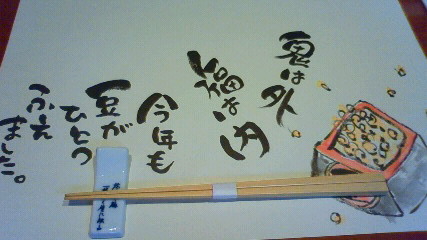 鬼は外
福は内
今年も
豆が
ひとつ
ふえ
ました。